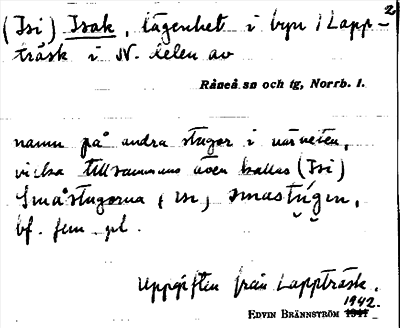 2
(Isi) Isak, lägenhet i byn Lapp-
träsk i N. delen av
Råneå sn och tg, Norrb. l.
namn på andra stugor i närheten,
vilka tillsammans även kallas (Isi)
Småstugorna, smastúgin,
bf. fem. pl.
Uppgiften från Lappträsk.
1942.
EDVIN BRÄNNSTRÖM 1941